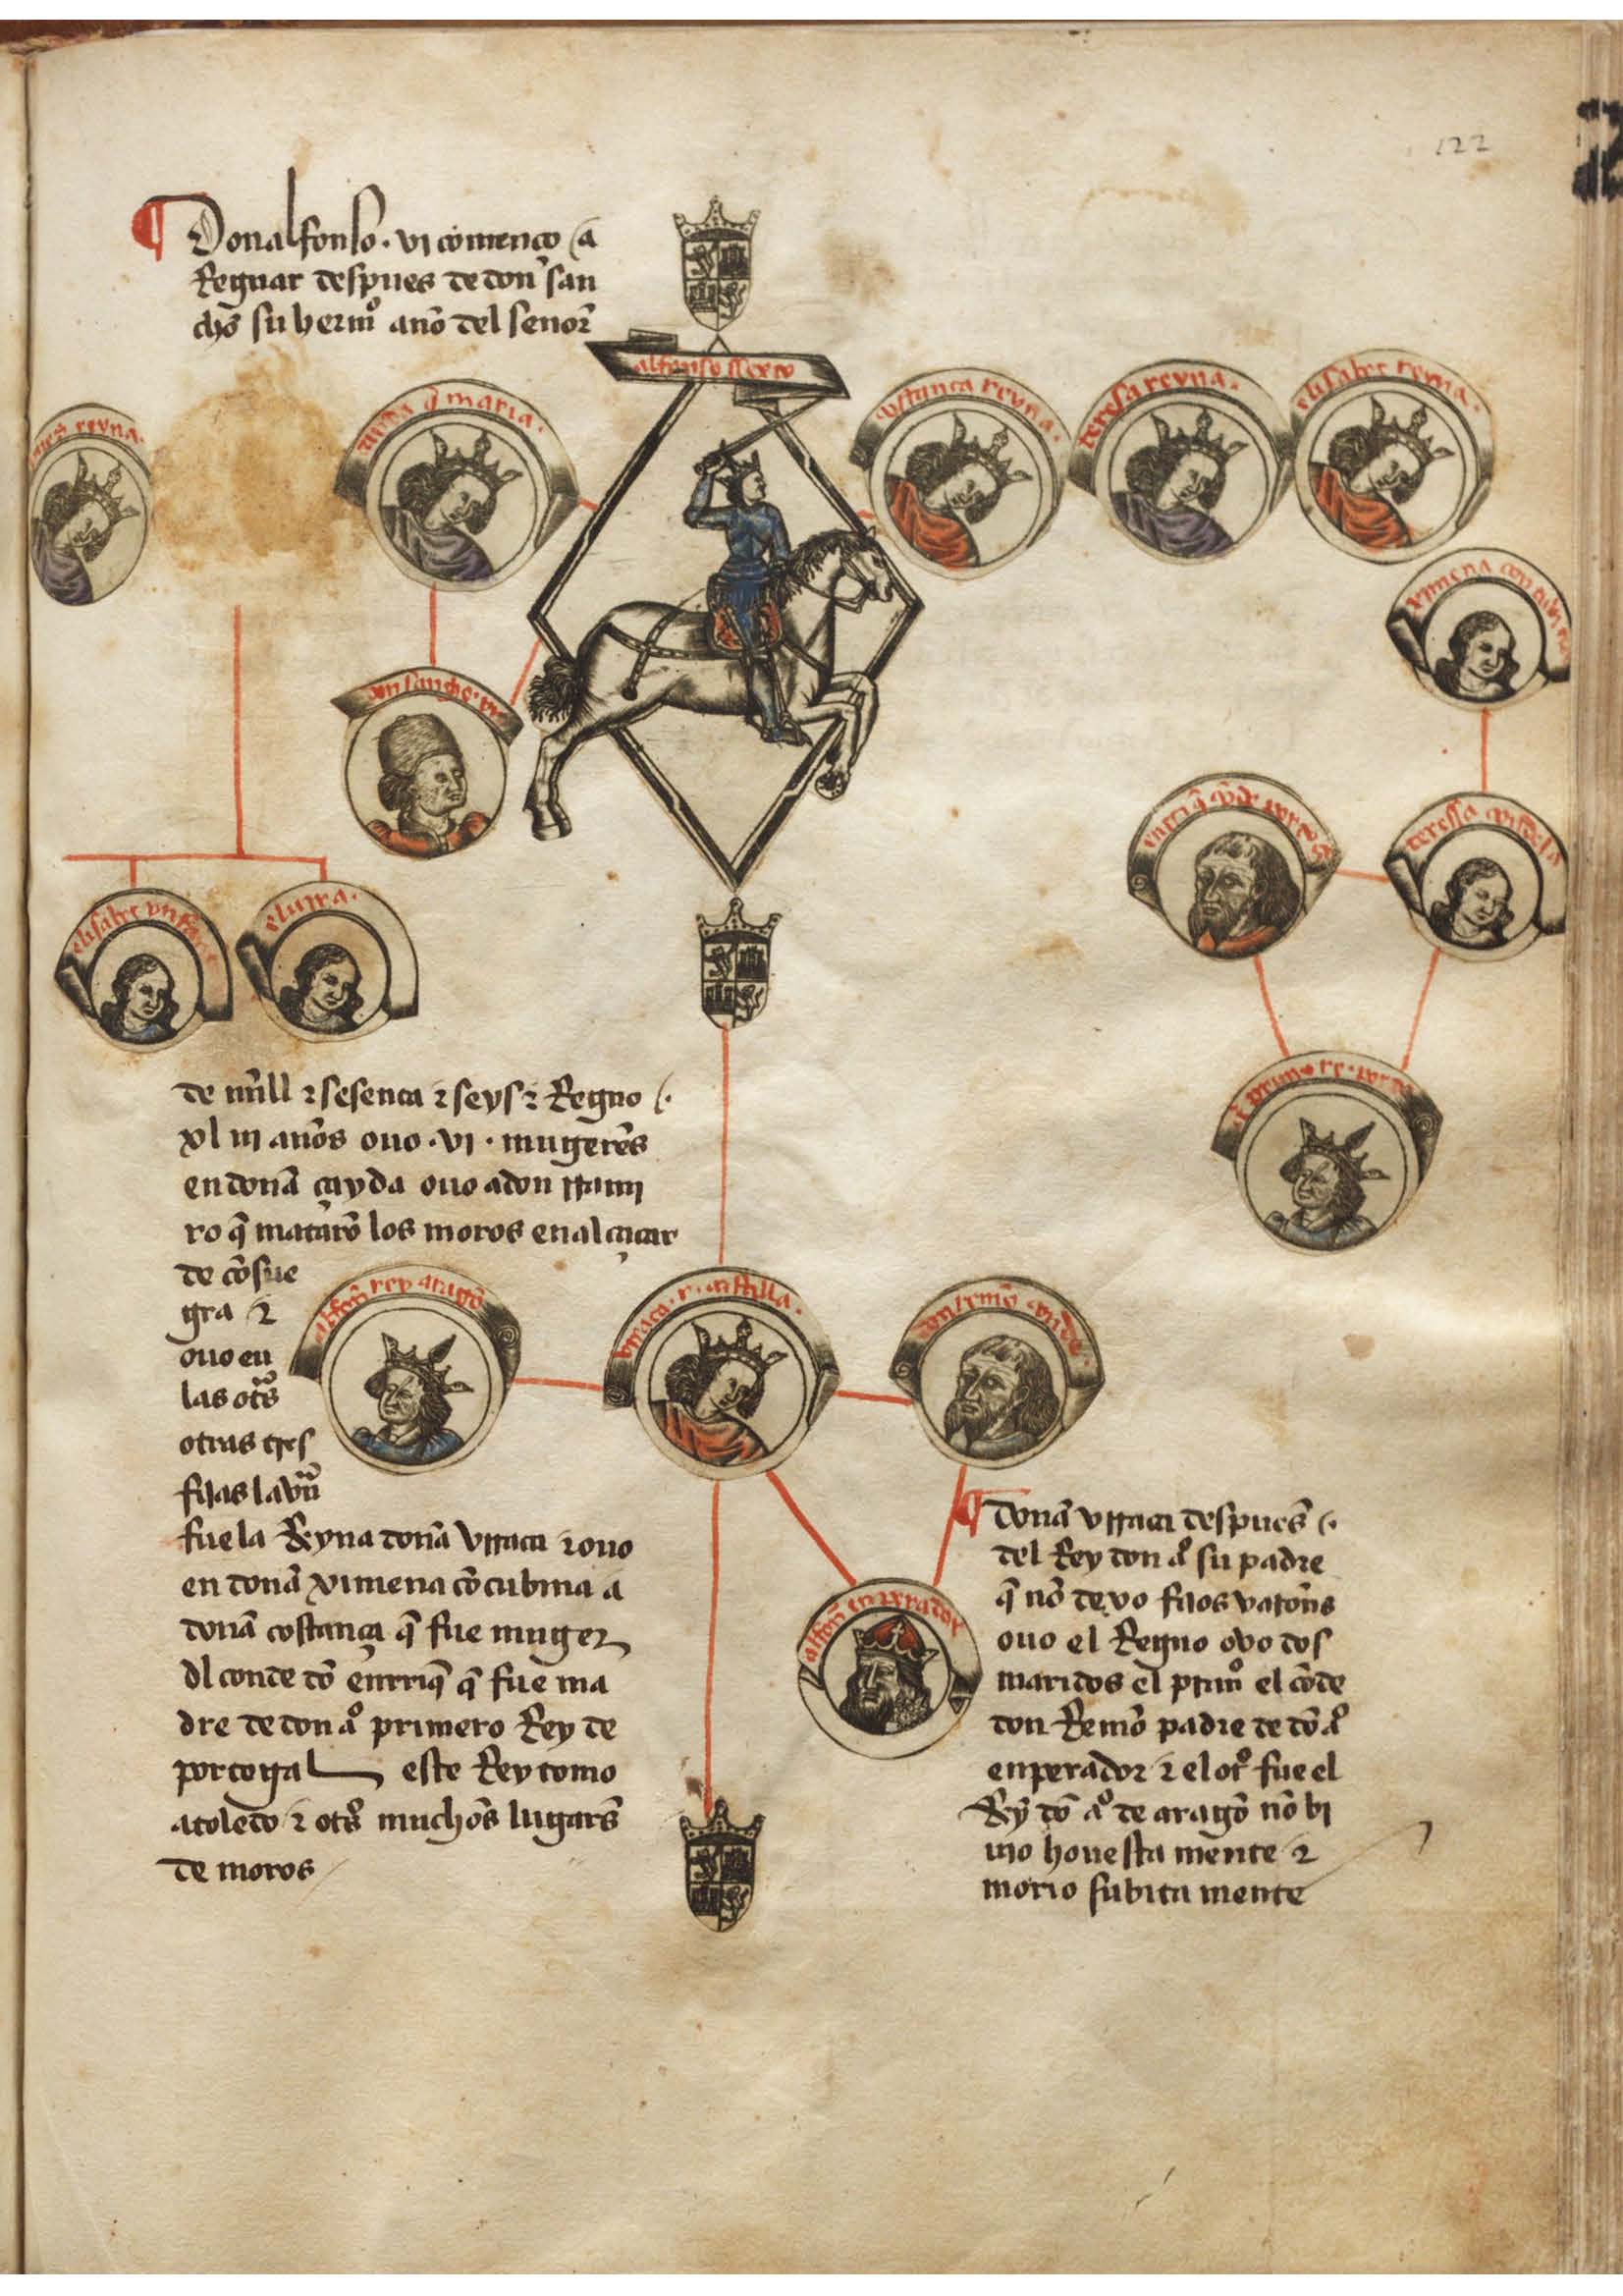 122
Don alfonso · vi començo a
Regnar despues de don san
cho su hermº año del señor
alfonso sexto
ynes reyna.
çayda q̃ maria.
costança reyna.
teresa reyna.
elisabet reyna.
ximena concubina
don sancho.
enrriq̃ cõde
elisabet
eluira.
de mill ⁊ sesenta ⁊ seys ⁊ Regno
xl iii años ouo · vi · mugeres
en doña çayda ouo a don rrami
ro q̃ matarõ los moros en alcaçar
de cõsue
gra ⁊
ouo en
las otªs
otras tres
fijas la vnª
fue la Reyna doña vrraca ⁊ ouo
en doña ximena cõcubina a
doña costança q̃ fue muger
dl conde dõ enrriq̃ q̃ fue ma
dre de don aº primero Rey de
portogal este Rey tomo
a toledo ⁊ otºs muchos lugares
de moros
alfon rey aragõ
vrraca · r · castilla ·
don remõ conde
alfon enperador
¶ doña vrraca despues
del Rey don aº su padre
q̃ nõ dexo fijos varones
ouo el Regno ovo dos
maridos el primº el cõde
don Remõ padre de dõ aº
enperador ⁊ el otº fue el
Rey dõ aº de aragõ nõ bi
uio honesta mente ⁊
morio subita mente